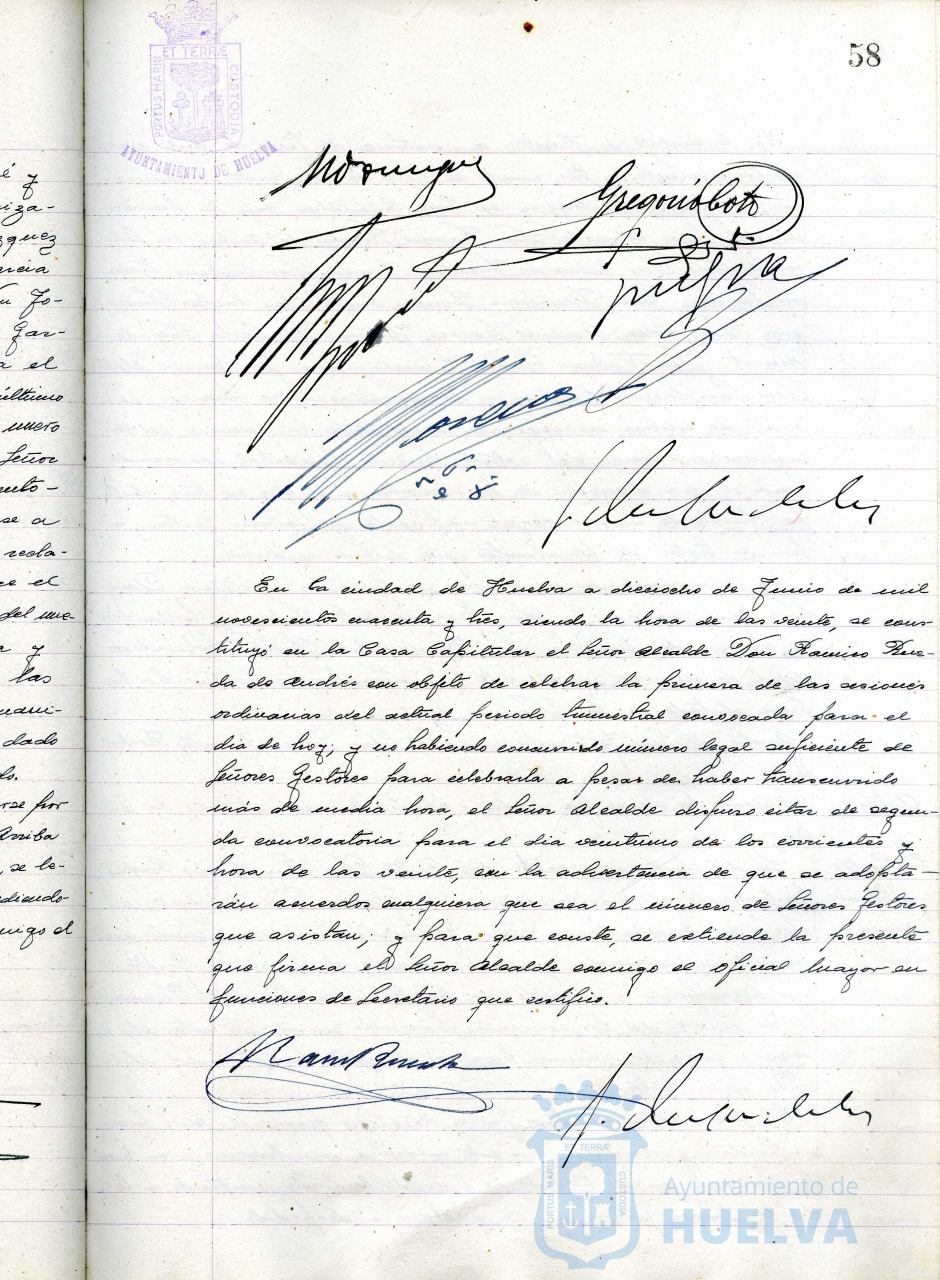 58
PORTUS MARIS ET TERRÆ CUSTODIA
AYUNTAMIENTO DE HUELVA
é y
iza-
zquez
arcia
Jo-
Gar-
a el
último
Señor
se a
recla-
ce el
y
las
dado
do.
rse por
Arriba
, se le-
ndiendo-
migo el
Gregorio Coto
En la ciudad de Huelva a dieciocho de Junio de mil
novescientos cuarenta y tres, siendo la hora de las veinte, se cons-
tituyó en la Casa Capitular el Señor Alcalde Don Ramiro Rue-
da de Andrés con objeto de celebrar la primera de las sesiones
ordinarias del actual periodo trimestral convocada para el
dia de hoy; y no habiendo concurrido número legal suficiente de
Señores Gestores para celebrarla a pesar de haber transcurrido
más de media hora, el Señor Alcalde dispuso citar de segun-
da convocatoria para el dia veintiuno de los corrientes y
hora de las veinte, con la advertencia de que se adopta-
rán acuerdos cualquiera que sea el número de Señores Gestores
que asistan; y para que conste, se extiende la presente
que firma el Señor Alcalde conmigo el Oficial Mayor en
funciones de Secretario que certifico.
PORTUS MARIS ET TERRÆ CUSTODIA
Ayuntamiento de
HUELVA